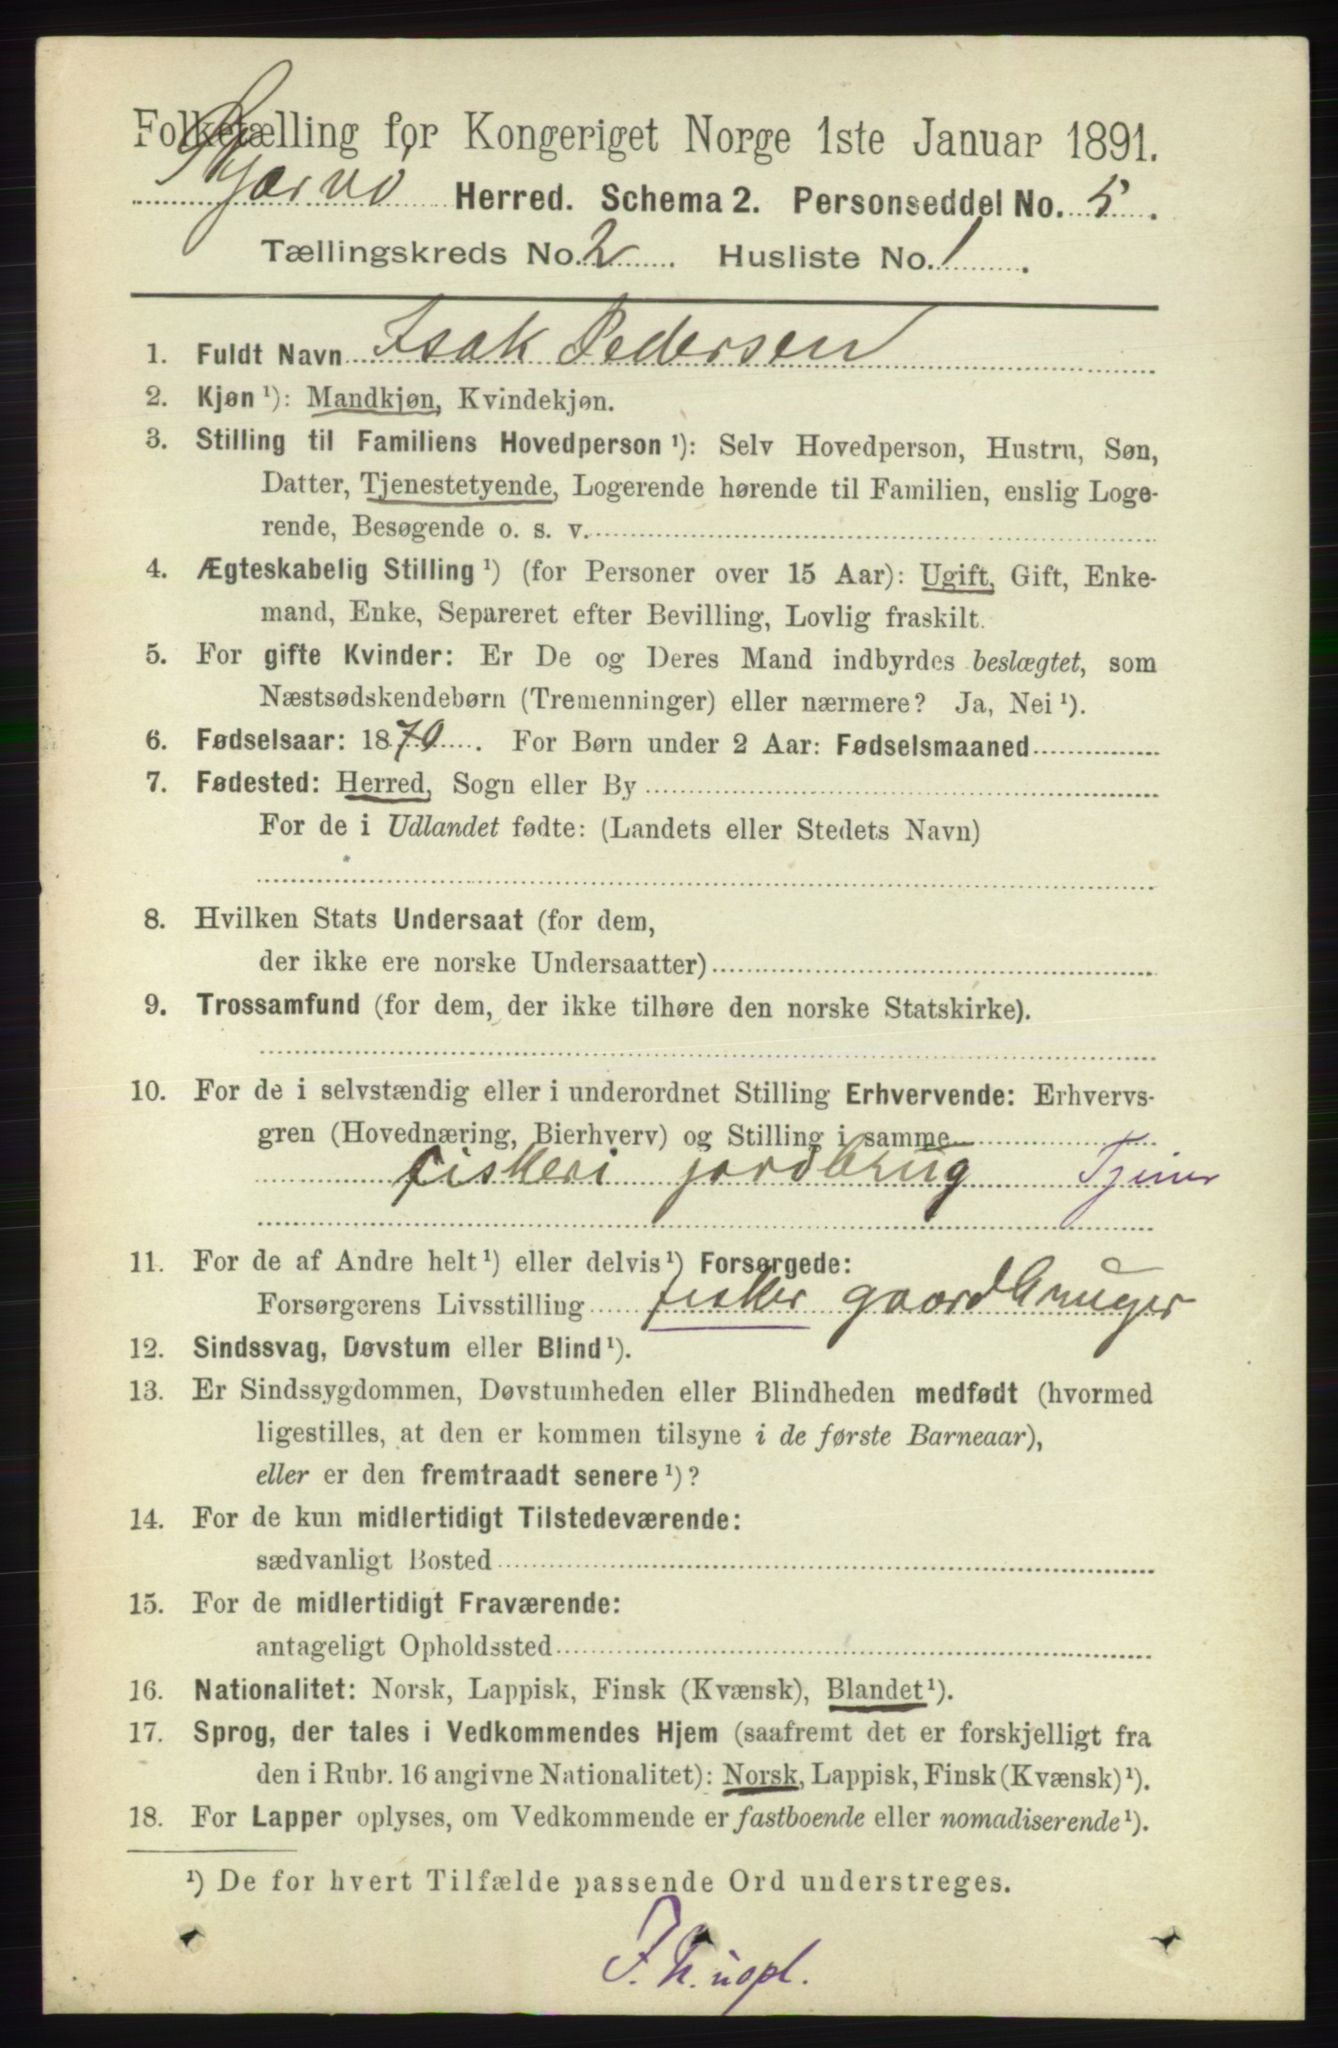 Folketælling for Kongeriget Norge 1ste Januar 1891.
Skjærvö Herred. Schema 2. Personseddel No. 5.
Tællingskreds No. 2. Husliste No. 1.
1. Fuldt Navn Isak Pedersen
2. Kjøn ¹): Mandkjøn, Kvindekjøn.
3. Stilling til Familiens Hovedperson ¹): Selv Hovedperson, Hustru, Søn,
Datter, Tjenestetyende, Logerende hørende til Familien, enslig Loge-
rende, Besøgende o. s. v.
4. Ægteskabelig Stilling ¹) (for Personer over 15 Aar): Ugift, Gift, Enke-
mand, Enke, Separeret efter Bevilling, Lovlig fraskilt.
5. For gifte Kvinder: Er De og Deres Mand indbyrdes beslægtet, som
Næstsødskendebørn (Tremenninger) eller nærmere? Ja, Nei ¹).
6. Fødselsaar: 1870. For Børn under 2 Aar: Fødselsmaaned
7. Fødested: Herred, Sogn eller By
For de i Udlandet fødte: (Landets eller Stedets Navn)
8. Hvilken Stats Undersaat (for dem,
der ikke ere norske Undersaatter)
9. Trossamfund (for dem, der ikke tilhøre den norske Statskirke).
10. For de i selvstændig eller i underordnet Stilling Erhvervende: Erhvervs-
gren (Hovednæring, Bierhverv) og Stilling i samme
fiskeri jordbrug Tjener
11. For de af Andre helt ¹) eller delvis ¹) Forsørgede:
Forsørgerens Livsstilling fisker gaardbruger
12. Sindssvag, Døvstum eller Blind ¹).
13. Er Sindssygdommen, Døvstumheden eller Blindheden medfødt (hvormed
ligestilles, at den er kommen tilsyne i de første Barneaar),
eller er den fremtraadt senere ¹)?
14. For de kun midlertidigt Tilstedeværende:
sædvanligt Bosted
15. For de midlertidigt Fraværende:
antageligt Opholdssted
16. Nationalitet: Norsk, Lappisk, Finsk (Kvænsk), Blandet ¹).
17. Sprog, der tales i Vedkommendes Hjem (saafremt det er forskjelligt fra
den i Rubr. 16 angivne Nationalitet): Norsk, Lappisk, Finsk (Kvænsk) ¹).
18. For Lapper oplyses, om Vedkommende er fastboende eller nomadiserende ¹).
¹) De for hvert Tilfælde passende Ord understreges.